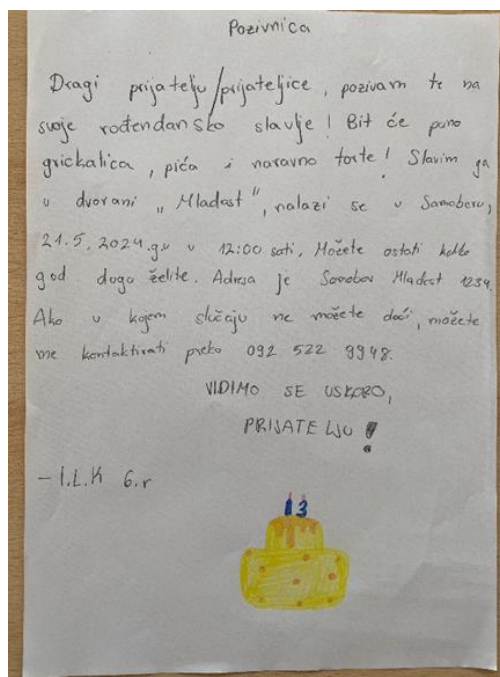 Pozivnica
Dragi prijatelju/prijateljice, pozivam te na
svoje rođendansko slavlje! Bit će puno
grickalica, pića i naravno torte! Slavim ga
u dvorani „Mladost“, nalazi se u Samoboru,
21.5.2024.g. u 12:00 sati. Možete ostati koliko
god dugo želite. Adresa je Samobor Mladost 1234.
Ako u kojem slučaju ne možete doći, možete
me kontaktirati preko 092 522 9948.
VIDIMO SE USKORO,
PRIJATELJU!
- I.L.K 6.r
13